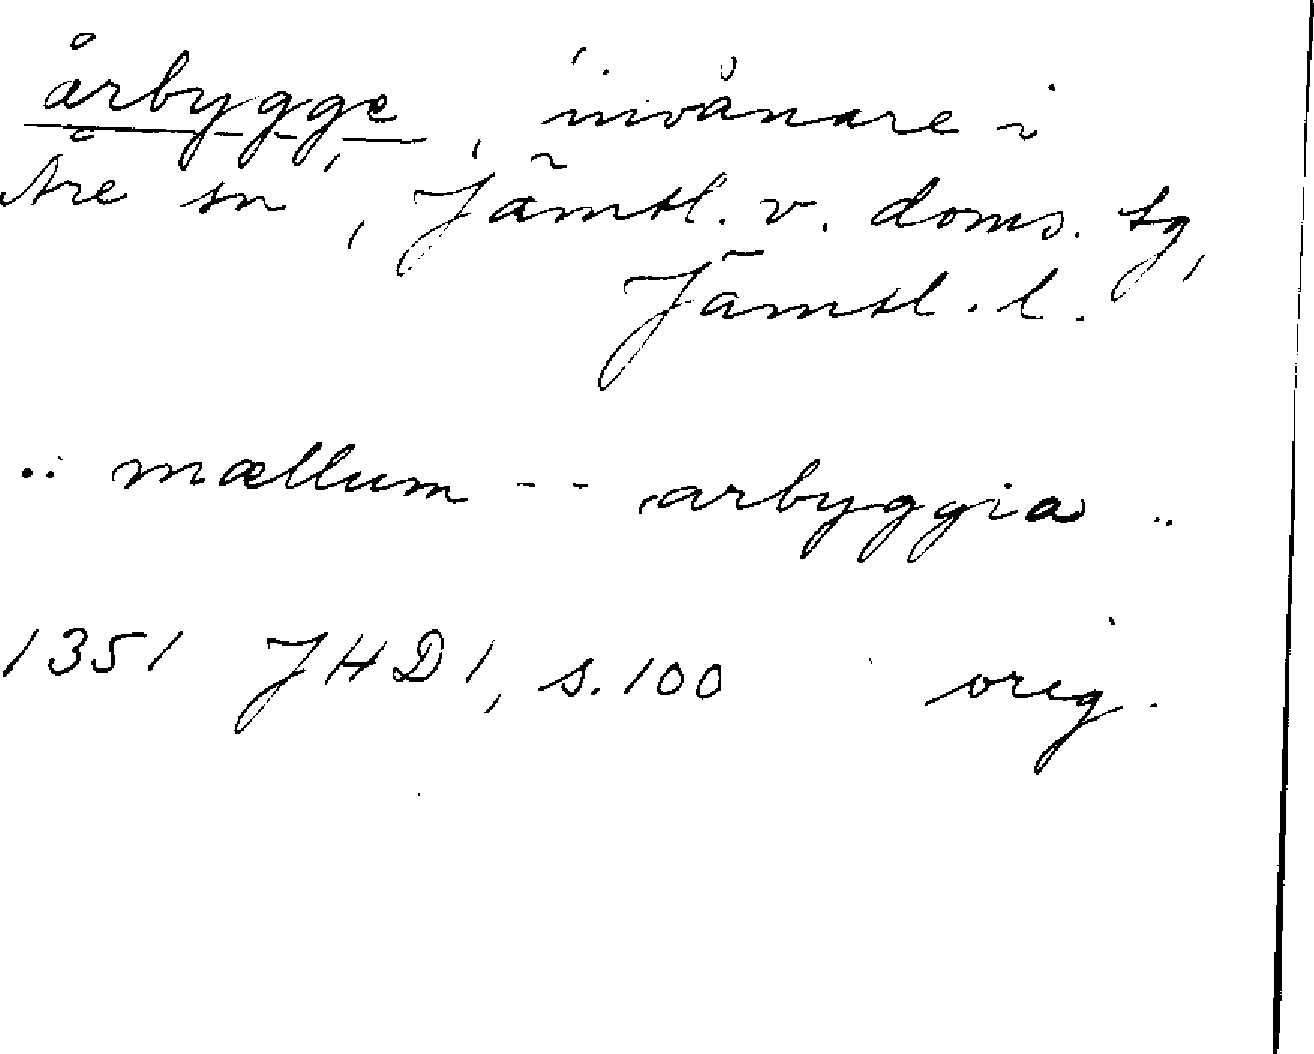 årbygge, invånare i
Åre sn, Jämtl. v. doms. tg,
Jämtl. l.
.. mællum -- arbyggia ..
1351 JHD 1, s. 100 orig.